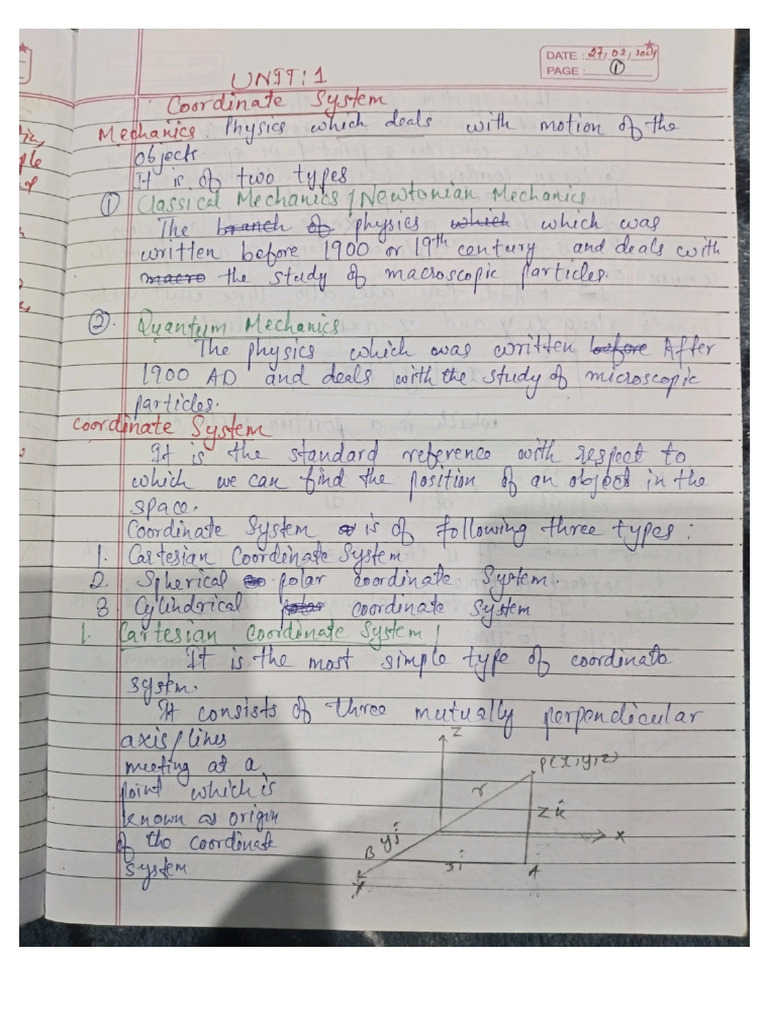 DATE: 27, 02, 2024
PAGE: 1
UNIT: 1
Coordinate System
Mechanics: Physics which deals with motion of the
objects
It is of two types
① Classical Mechanics / Newtonian Mechanics
The branch of physics which which was
written before 1900 or 19th century and deals with
macro the study of macroscopic particles.
②. Quantum Mechanics
The physics which was written before After
1900 AD and deals with the study of microscopic
particles.
Coordinate System
It is the standard reference with respect to
which we can find the position of an object in the
space.
Coordinate System is of following three types:
1. Cartesian Coordinate System
2. Spherical polar coordinate System.
3 Cylindrical polar coordinate System
1. Cartesian Coordinate System
It is the most simple type of coordinate
systm.
It consists of three mutually perpendicular
axis/lines
meeting at a
point which is
known as origin
of the coordinate
system
Z
P(x,y,z)
r
zk̂
X
B yĵ
A
Y